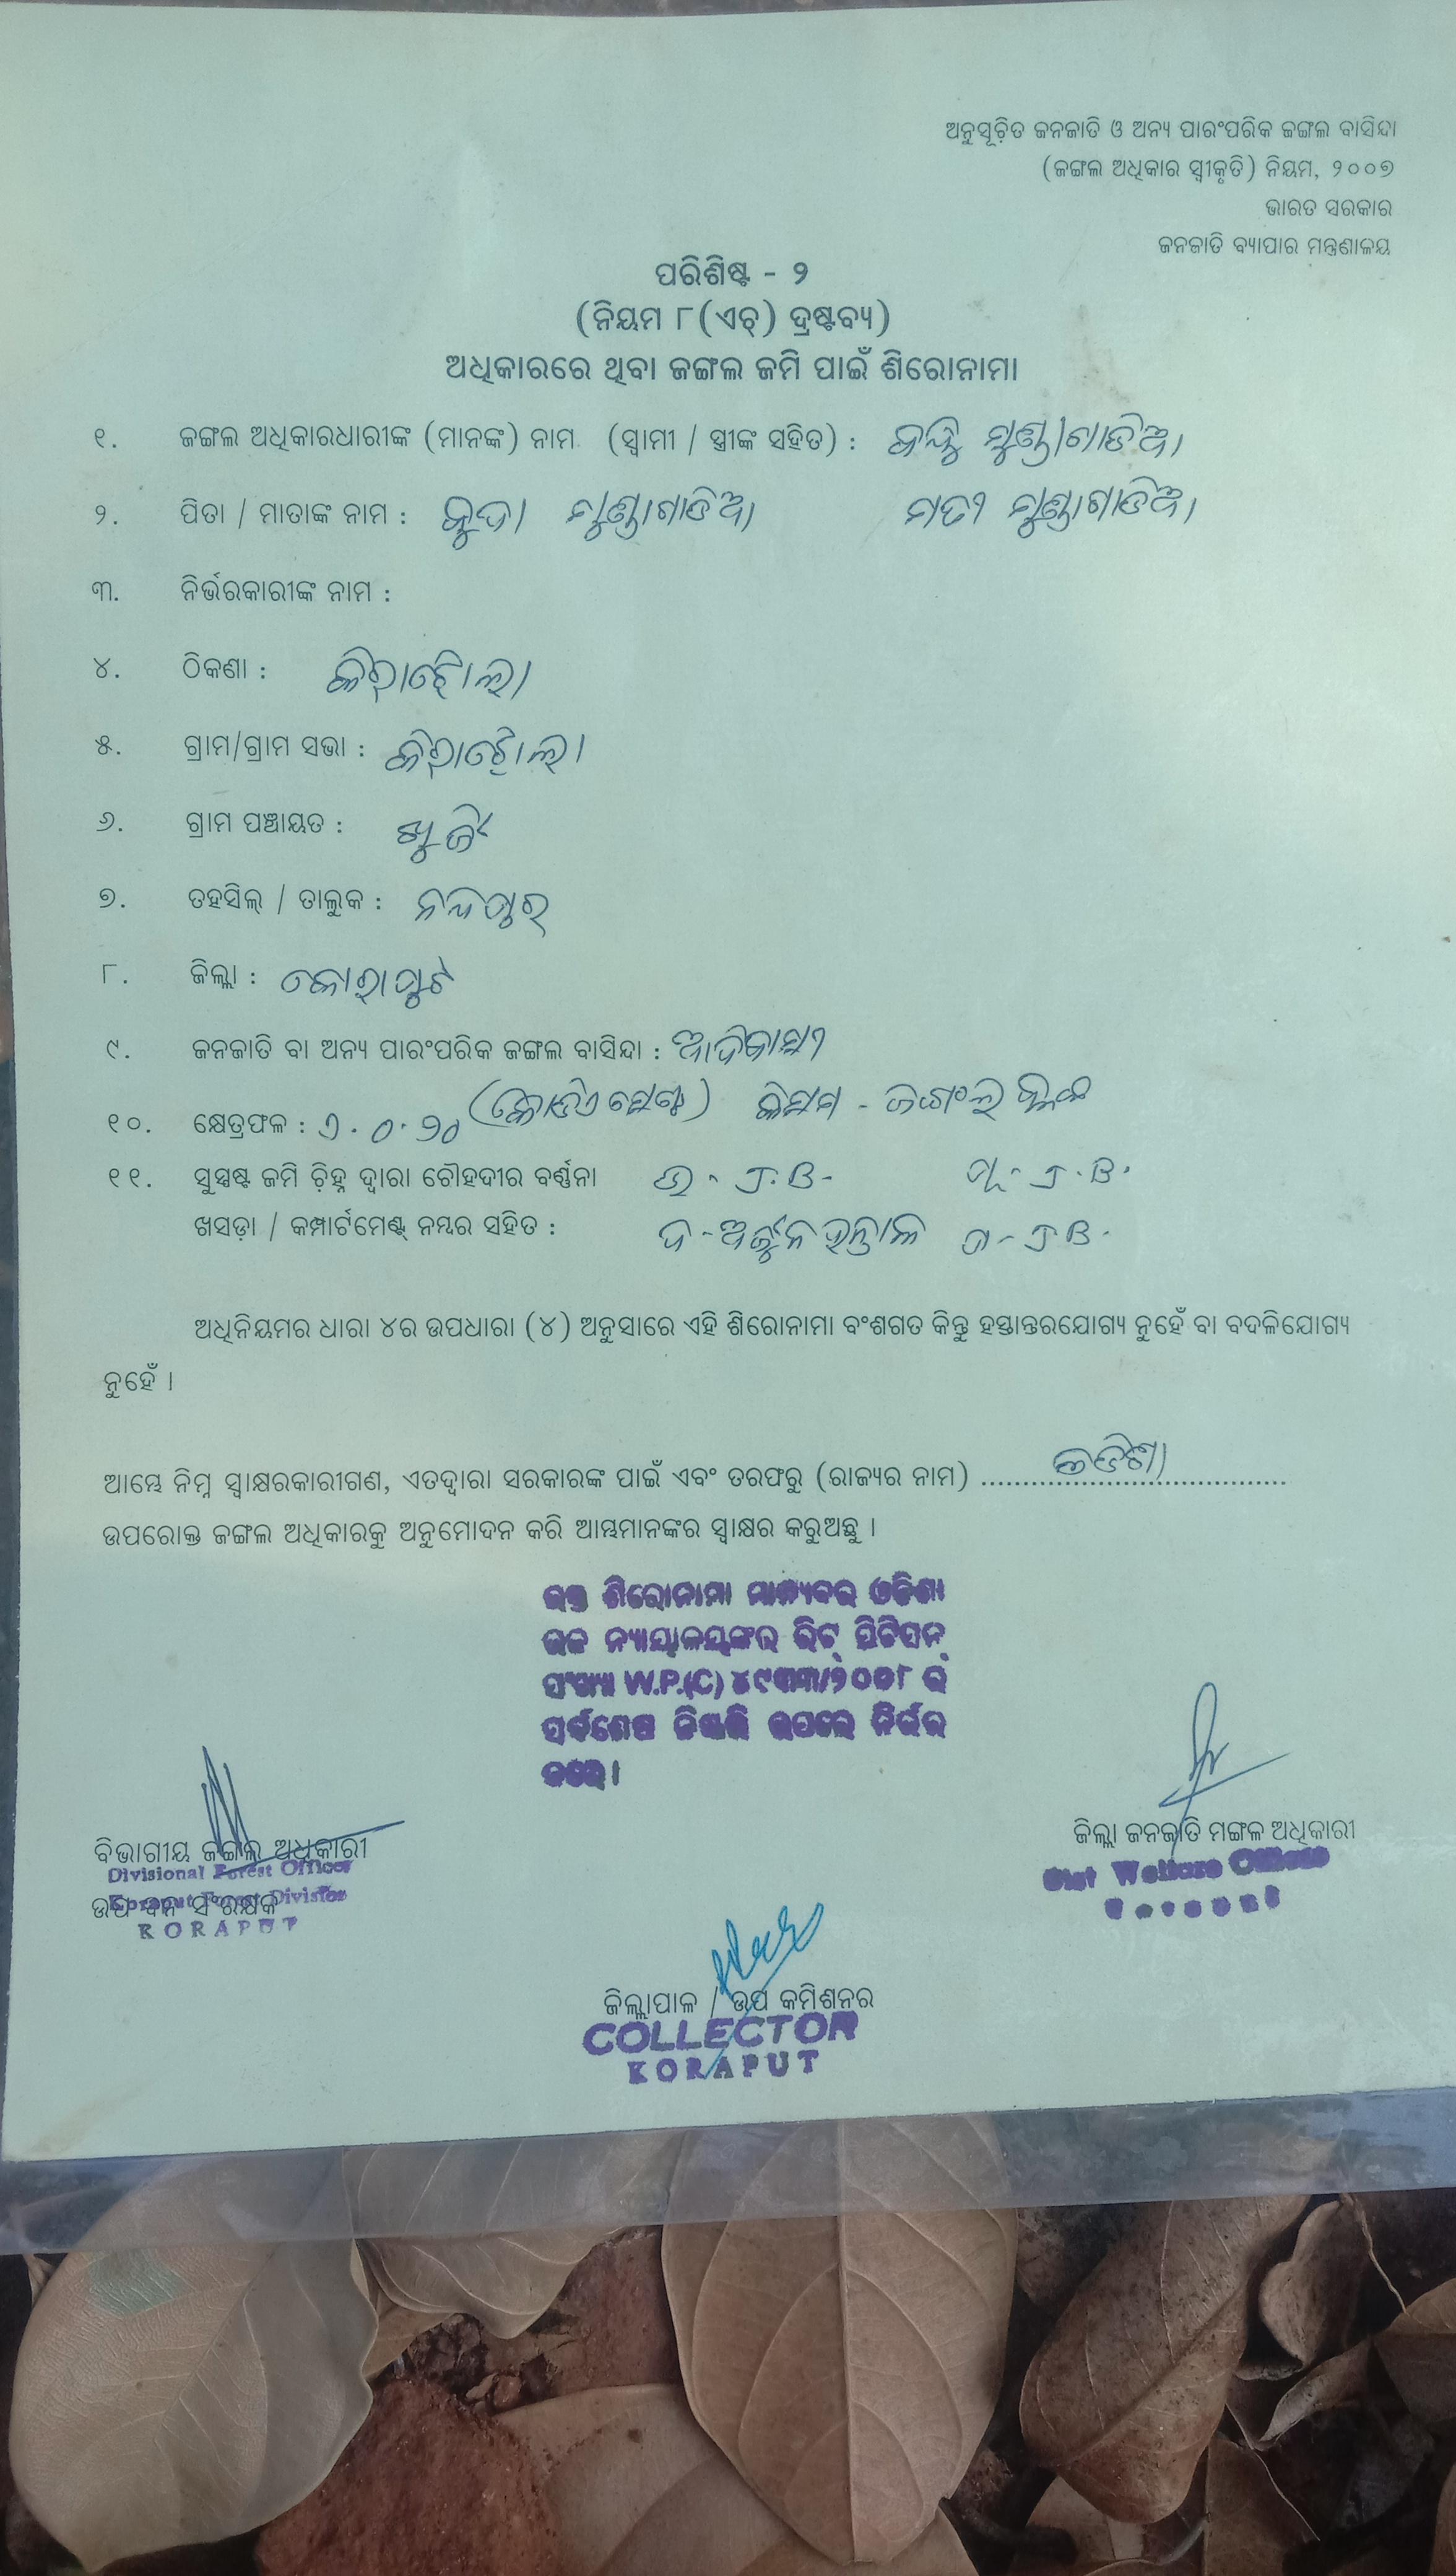 ଅନୁସୂଚିତ ଜନଜାତି ଓ ଅନ୍ୟ ପାରଂପରିକ ଜଙ୍ଗଲ ବାସିନ୍ଦା
(ଜଙ୍ଗଲ ଅଧିକାର ସ୍ୱୀକୃତି) ନିୟମ, ୨୦୦୭
ଭାରତ ସରକାର
ଜନଜାତି ବ୍ୟାପାର ମନ୍ତ୍ରଣାଳୟ
ପରିଶିଷ୍ଟ - ୨
(ନିୟମ ୮(ଏଚ୍) ଦ୍ରଷ୍ଟବ୍ୟ)
ଅଧିକାରରେ ଥିବା ଜଙ୍ଗଲ ଜମି ପାଇଁ ଶିରୋନାମା
୧. ଜଙ୍ଗଲ ଅଧିକାରଧାରୀଙ୍କ (ମାନଙ୍କ) ନାମ (ସ୍ୱାମୀ / ସ୍ତ୍ରୀଙ୍କ ସହିତ) : ମୁଣ୍ଡାଗାଡିଆ
୨. ପିତା / ମାତାଙ୍କ ନାମ : ମୁଣ୍ଡାଗାଡିଆ ମତୀ ମୁଣ୍ଡାଗାଡିଆ
୩. ନିର୍ଭରକାରୀଙ୍କ ନାମ :
୪. ଠିକଣା :
୫. ଗ୍ରାମ/ଗ୍ରାମ ସଭା :
୬. ଗ୍ରାମ ପଞ୍ଚାୟତ :
୭. ତହସିଲ୍ / ତାଲୁକ : ନନ୍ଦପୁର
୮. ଜିଲ୍ଲା : କୋରାପୁଟ
୯. ଜନଜାତି ବା ଅନ୍ୟ ପାରଂପରିକ ଜଙ୍ଗଲ ବାସିନ୍ଦା : ଆଦିବାସୀ
୧୦. କ୍ଷେତ୍ରଫଳ : କିସମ -
୧୧. ସୁସ୍ପଷ୍ଟ ଜମି ଚିହ୍ନ ଦ୍ୱାରା ଚୌହଦୀର ବର୍ଣ୍ଣନା
ଖସଡ଼ା / କମ୍ପାର୍ଟମେଣ୍ଟ୍ ନମ୍ବର ସହିତ : ଦ - ଅର୍ଜୁନ
ଅଧିନିୟମର ଧାରା ୪ର ଉପଧାରା (୪) ଅନୁସାରେ ଏହି ଶିରୋନାମା ବଂଶଗତ କିନ୍ତୁ ହସ୍ତାନ୍ତରଯୋଗ୍ୟ ନୁହେଁ ବା ବଦଳିଯୋଗ୍ୟ
ନୁହେଁ ।
ଆମ୍ଭେ ନିମ୍ନ ସ୍ୱାକ୍ଷରକାରୀଗଣ, ଏତଦ୍ୱାରା ସରକାରଙ୍କ ପାଇଁ ଏବଂ ତରଫରୁ (ରାଜ୍ୟର ନାମ) ଓଡିଶା
ଉପରୋକ୍ତ ଜଙ୍ଗଲ ଅଧିକାରକୁ ଅନୁମୋଦନ କରି ଆମ୍ଭମାନଙ୍କର ସ୍ୱାକ୍ଷର କରୁଅଛୁ ।
ଉକ୍ତ ଶିରୋନାମା ମାନ୍ୟବର ଓଡିଶା
ଉଚ୍ଚ ନ୍ୟାୟାଳୟଙ୍କର ରିଟ୍ ପିଟିସନ୍
ସଂଖ୍ୟା W.P.(C) ୪୯୩୩/୨୦୦୮ ର
ସର୍ବଶେଷ ନିଷ୍ପତ୍ତି ଉପରେ ନିର୍ଭର
କରେ ।
ବିଭାଗୀୟ ଜଙ୍ଗଲ ଅଧିକାରୀ
Divisional Forest Officer
ଉପ ବନ ସଂରକ୍ଷକ
Koraput Forest Division
KORAPUT
ଜିଲ୍ଲା ଜନଜାତି ମଙ୍ଗଳ ଅଧିକାରୀ
Dist Welfare Officer
ଜିଲ୍ଲାପାଳ / ଉପ କମିଶନର
COLLECTOR
KORAPUT